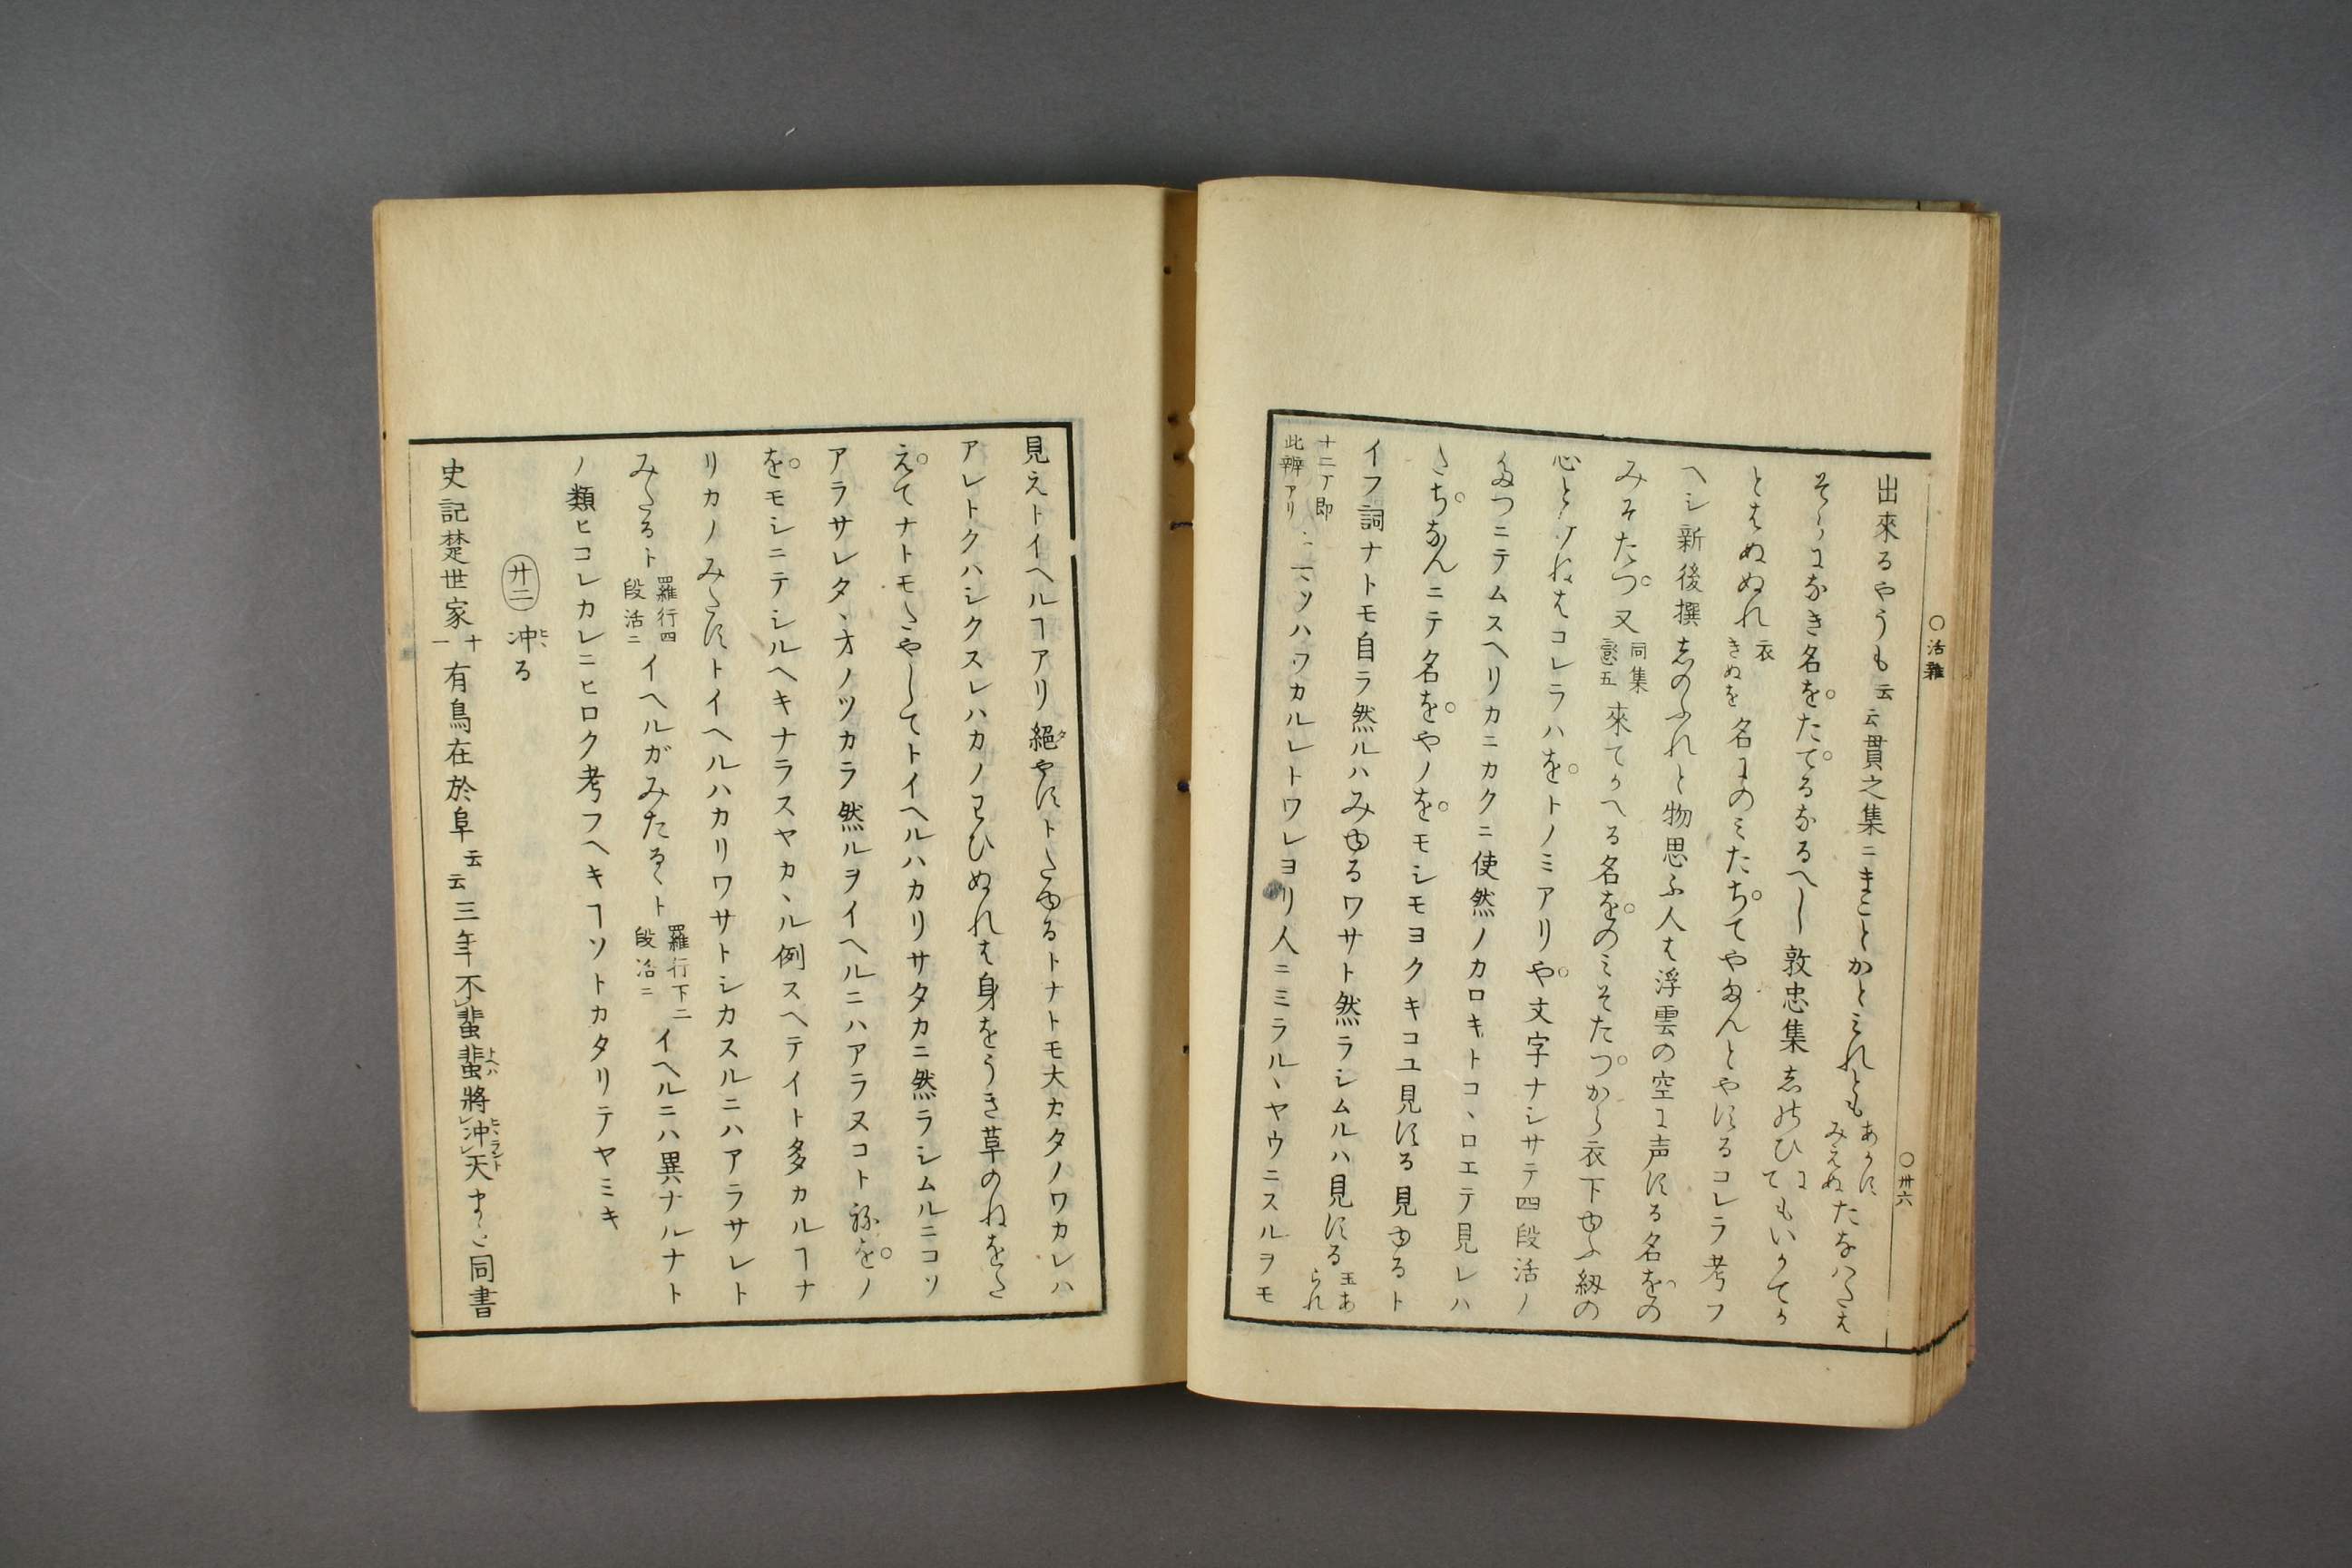 ○活雜
○卅六
出來るやうも云云貫之集ニまことかとミれともみえぬたなはたは
そらになき名をたてるなるへし敦忠集しのひてもいかてか
とはぬぬれきぬを衣名にのミたちてやまんとやスるコレラ考フ
ヘシ新後撰しのふれと物思ふ人は浮雲の空に声スる名をの
みそたつ又同集戀五來てかへる名をのミそたつから衣下ゆふ紐の
心とけねはコレラハをトノミアリや文字ナシサテ四段活ノ
たつニテムスヘリカニカクニ使然ノカロキトコヽロエテ見レハ
たちなんニテ名をやノをモシモヨクキコユ見スる見ゆるト
イフ詞ナトモ自ラ然ルハみゆるワサト然ラシムルハ見スる玉あられ
十二丁即此辨アリニテソハワカルレトワレヨリ人ニミラルヽヤウニスルヲモ
見えトイヘルヿアリ絕やストたゆるトナトモ大カタノワカレハ
アレトクハシクスレハカノわひぬれは身をうき草のねをた
えてナトモたやしてトイヘルハカリサタカニ然ラシムルニコソ
アラサレタヽオノツカラ然ルヲイヘルニハアラヌコト祢をノ
をモシニテシルヘキナラスヤカヽル例スヘテイト多カルヿナ
リカノみたストイヘルハカリワサトシカスルニハアラサレト
みたるト羅行四段活ニイヘルガみたるヽト羅行下二段活ニイヘルニハ異ナルナト
ノ類ヒコレカレニヒロク考フヘキヿソトカタリテヤミキ
廿二 冲る
史記楚世家十一有鳥在於阜云云三年不蜚蜚將冲天まへに同書